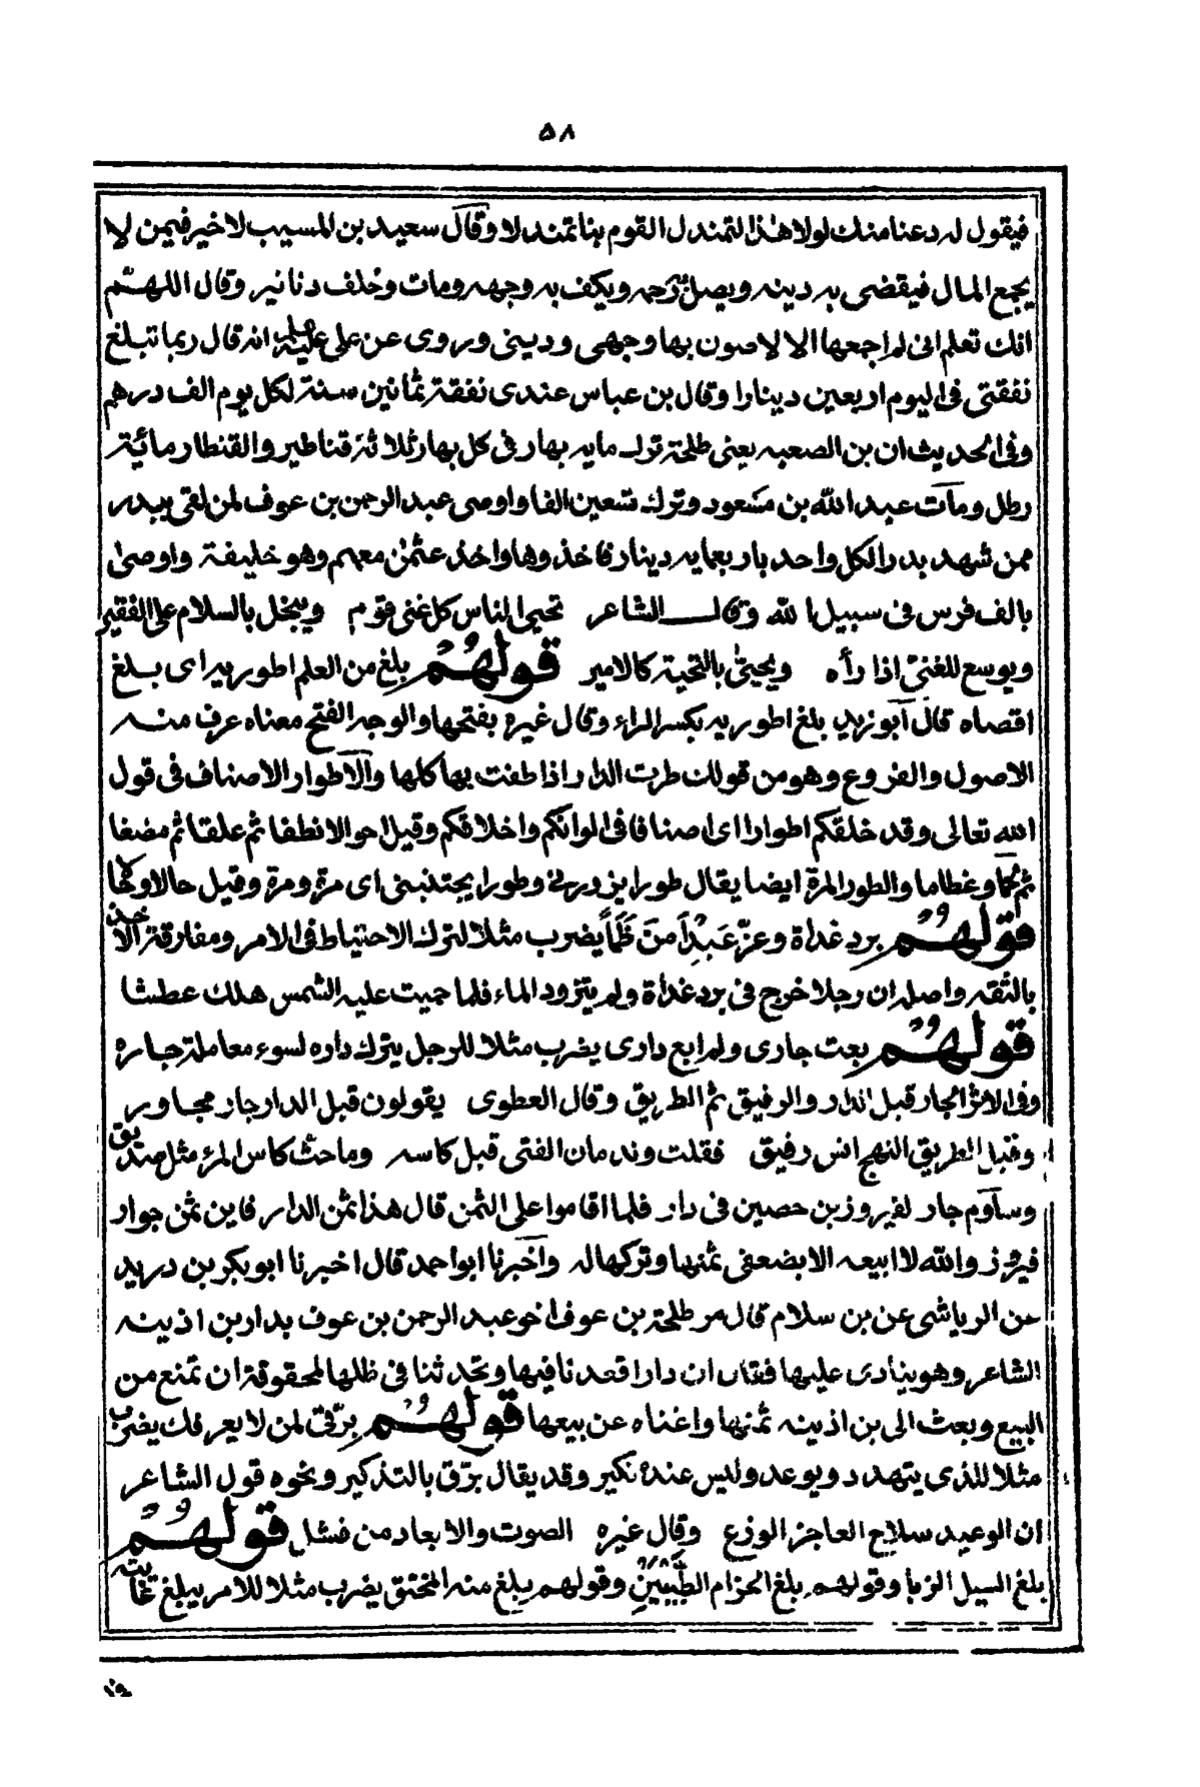 ٥٨
فيقول له دعنا منك لولا هذا لتمندل القوم بنا تمندلا وقال سعيد بن المسيب لا خير فيمن لا
يجمع المال فيقضى به دينه ويصل رحمه ويكف به وجهه ومات وخلف دنانير وقال اللهم
انك تعلم انى لم اجمعها الا لاصون بها وجهى ودينى وروى عن على عليه السلام انه قال ربما تبلغ
نفقتى فى اليوم اربعين دينارا وقال بن عباس عندى نفقة ثمانين سنة لكل يوم الف درهم
وفى الحديث ان بن الصعبه يعنى طلحة ترك مايه بهار فى كل بهار ثلاثة قناطير والقنطار مائية
رطل ومات عبد الله بن مسعود وترك تسعين الفا واوصى عبد الرحمن بن عوف لمن لقى ببدر
ممن شهد بدرا لكل واحد باربعمايه دينار فاخذوها واخذ عثمٰن معهم وهو خليفة واوصىٰ
بالف فرس فى سبيل الله وقال الشاعر تحيى الناس كل غنى قوم ويبخل بالسلام على الفقير
ويوسع للغنىّ اذا رأه ويحيىٰ بالتحية كالامير قولهُم بلغ من العلم اطوريه اى بلغ
اقصاه قال ابو زيد بلغ اطوريه بكسر الراء وقال غيره بفتحها والوجه الفتح معناه عرف منه
الاصول والفروع وهو من قولك طرت الدار اذا طفت بها كلها والاطوار الاصناف فى قول
الله تعالى وقد خلقكم اطوارا اى اصنافا فى الوانكم واخلاقكم وقيل احوالا نطفا ثم علقا ثم مضغا
ثم لحما وعظاما والطور المرة ايضا يقال طورا يزدرنى وطورا يجتذبنى اى مرة ومرة وقيل حالا وحالا
قولهُم برد غداة وعزّ عَبْدِاً منَ ظَمَاً يضرب مثلا لترك الاحتياط فى الامر ومفارقة الاخذ
بالثقه واصله ان رجلا خرج فى برد غداة ولم يتزود الماء فلما حميت عليه الشمس هلك عطشا
قولهُم بعت جارى ولم ابع دارى يضرب مثلا للرجل يترك داره لسوء معاملة جاره
وفى الاثر الجار قبل الدار والرفيق ثم الطريق وقال العطوى يقولون قبل الدار جار مجاور
وقبل الطريق النهج انس رفيق فقلت وندمان الفتى قبل كاسه وما حث كاس المرء مثل صديق
وساوم جار لفيروز بن حصين فى دار فلما اقاموا على الثمن قال هذا ثمن الدار فاين ثمن جوار
فيروز والله لا ابيعه الا بضعفى ثمنها وتركها له واخبرنا ابو احمد قال اخبرنا ابو بكر بن دريد
عن الرياشى عن بن سلام قال مر طلحة بن عوف اخو عبد الرحمن بن عوف بدار بن اذينه
الشاعر وهو ينادى عليها فقال ان دارا قعدنا فيها وتحدثنا فى ظلها لمحقوقة ان تمنع من
البيع وبعث الى بن اذينه ثمنها واغناه عن بيعها قولهُم برّقى لمن لا يعرفك يضرب
مثلا للذى يتهدد ويوعد وليس عنده نكير وقد يقال برّق بالتذكير ونحوه قول الشاعر
ان الوعيد سلاح العاجز الوزع وقال غيره الصوت والابعاد من فشل قولهُم
بلغ السيل الزبا وقولهم بلغ الحزام الطُّبيينِ وقولهم بلغ منه المخنق يضرب مثلا للامر يبلغ غايته